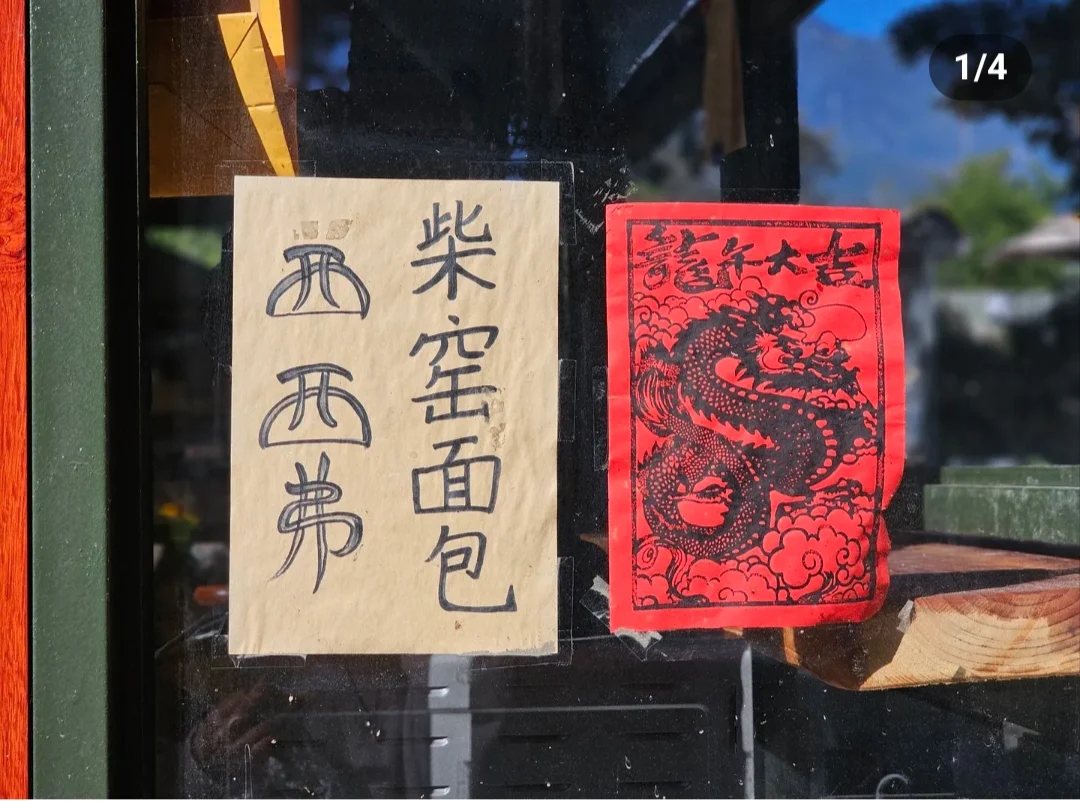 1/4
柴窑面包
西西弗
龍年大吉